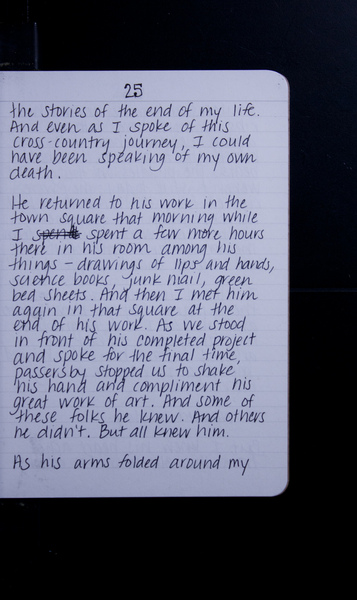 25
the stories of the end of my life.
And even as I spoke of this
cross-country journey, I could
have been speaking of my own
death.
He returned to his work in the
town square that morning while
I spent spent a few more hours
there in his room among his
things - drawings of lips and hands,
science books, junk mail, green
bed sheets. And then I met him
again in that square at the
end of his work. As we stood
in front of his completed project
and spoke for the final time,
passersby stopped us to shake
his hand and compliment his
great work of art. And some of
these folks he knew. And others
he didn't. But all knew him.
As his arms folded around my